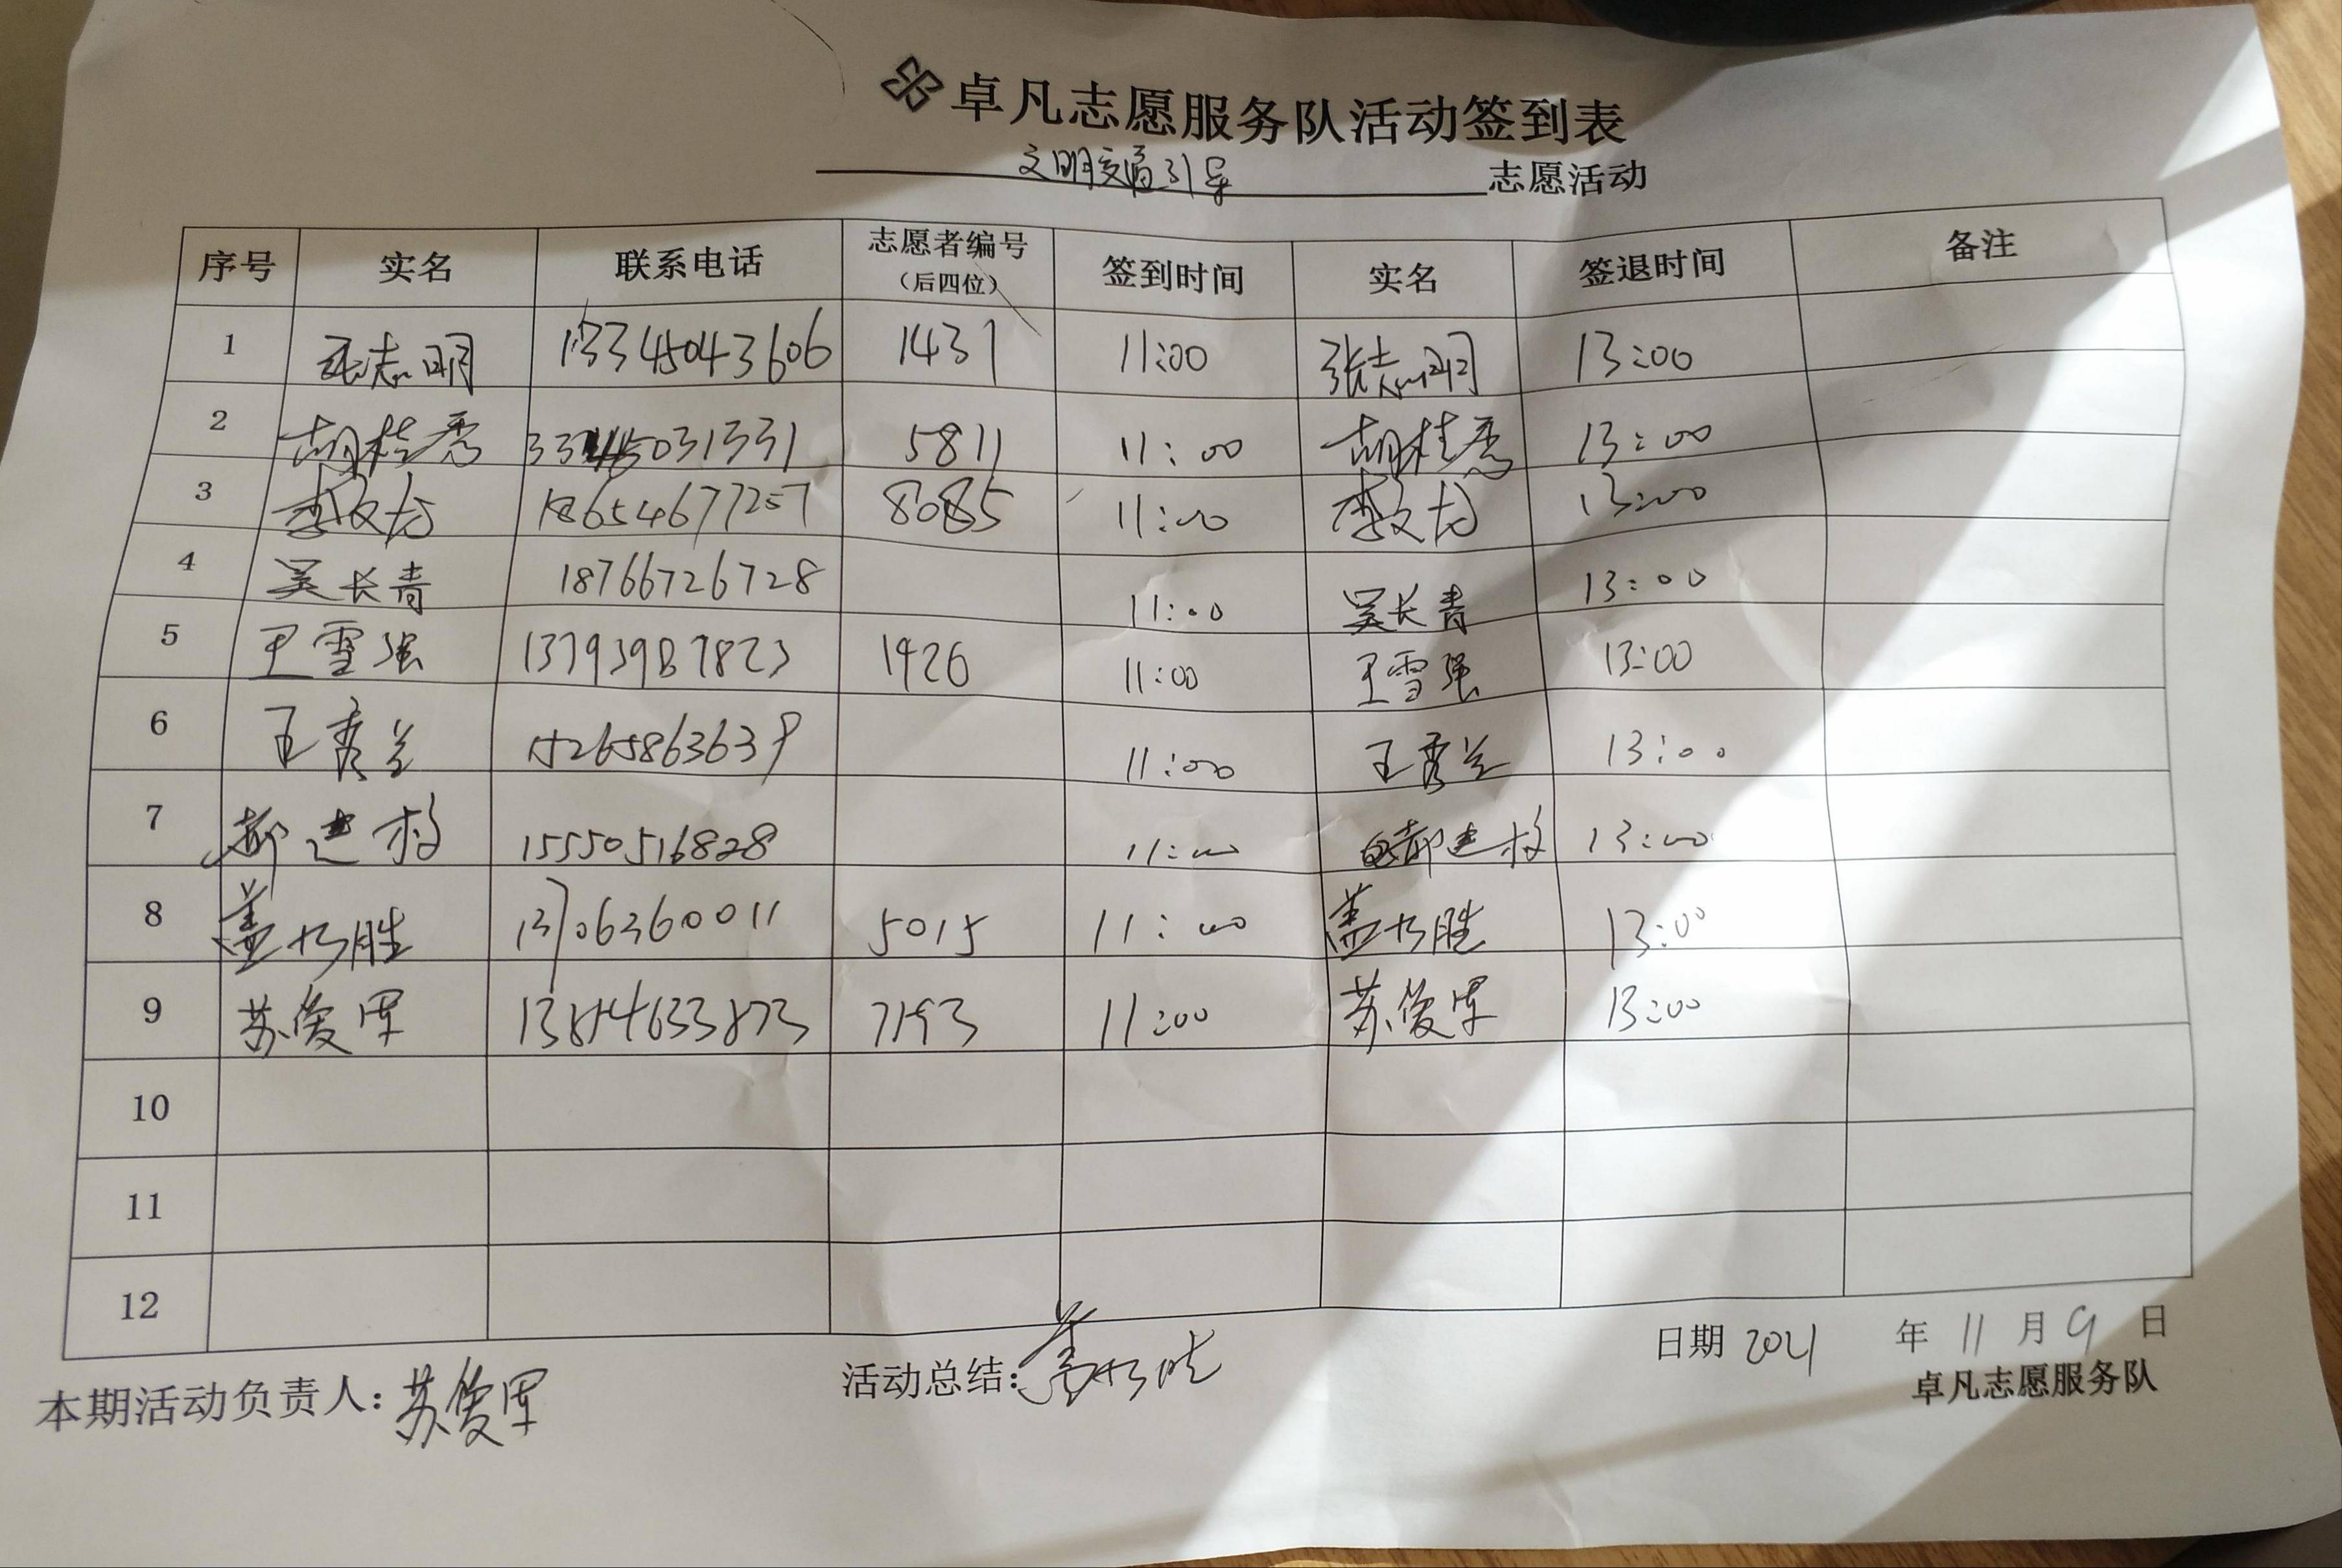 卓凡志愿服务队活动签到表
文明交通引导 志愿活动
序号 实名 联系电话 志愿者编号（后四位） 签到时间 实名 签退时间 备注
1 张志明 13345043606 1431 11:00 张志明 13:00
2 胡桂秀 5811 11:00 胡桂秀 13:00
3 李文方 18654677257 8085 11:00 李文方 13:00
4 吴长青 18766726728 11:00 吴长青 13:00
5 王雪强 13793987823 1426 11:00 王雪强 13:00
6 王秀兰 15265863639 11:00 王秀兰 13:00
7 15550516828 11:00 13:00
8 盖乃胜 13706360011 5015 11:00 盖乃胜 13:00
9 苏俊军 7193 11:00 苏俊军 13:00
10
11
12
本期活动负责人：苏俊军 活动总结： 日期 2021 年 11 月 9 日
卓凡志愿服务队